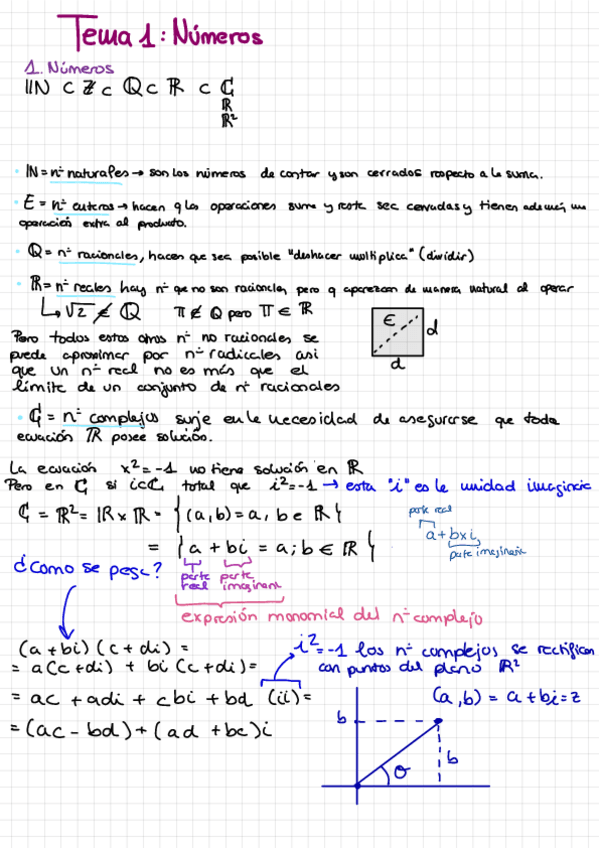 Tema 1: Números
1. Números
ℕ ⊂ ℤ ⊂ ℚ ⊂ ℝ ⊂ ℂ
ℝ
ℝ²
· ℕ = nº naturales → son los números de contar y son cerrados respecto a la suma.
· E = nº enteros → hacen q las operaciones suma y resta sea cerradas y tienen además una
operación extra al producto.
· ℚ = nº racionales, hacen que sea posible "deshacer multiplica" (dividir)
· ℝ = nº reales hay nº que no son racionales, pero q aparezcan de manera natural al operar
↳ √2 ∉ ℚ π ∉ ℚ pero π ∈ ℝ
E
d
d
Pero todos estos otros nº no racionales se
puede aproximar por nº radicales asi
que un nº real no es más que el
límite de un conjunto de nº racionales
· ℂ = nº complejos surje en le necesidad de asegurarse que toda
ecuación ℝ posee solución.
La ecuación x² = -1 no tiene solución en ℝ
Pero en ℂ si i∈ℂ total que i² = -1 → esta "i" es le unidad imaginaria
ℂ = ℝ² = ℝ × ℝ = {(a,b) = a, b ∈ ℝ}
= {a + bi = a; b ∈ ℝ}
parte real
a + bxi
parte imaginaria
¿Como se pasa?
parte real
parte imaginaria
expresión monomial del nº complejo
(a + bi)(c + di) =
= a(c + di) + bi(c + di) =
= ac + adi + cbi + bd (ii) =
= (ac - bd) + (ad + bc)i
i² = -1 los nº complejos se rectifican
con puntos del plano ℝ²
(a,b) = a + bi = z
b
b
θ